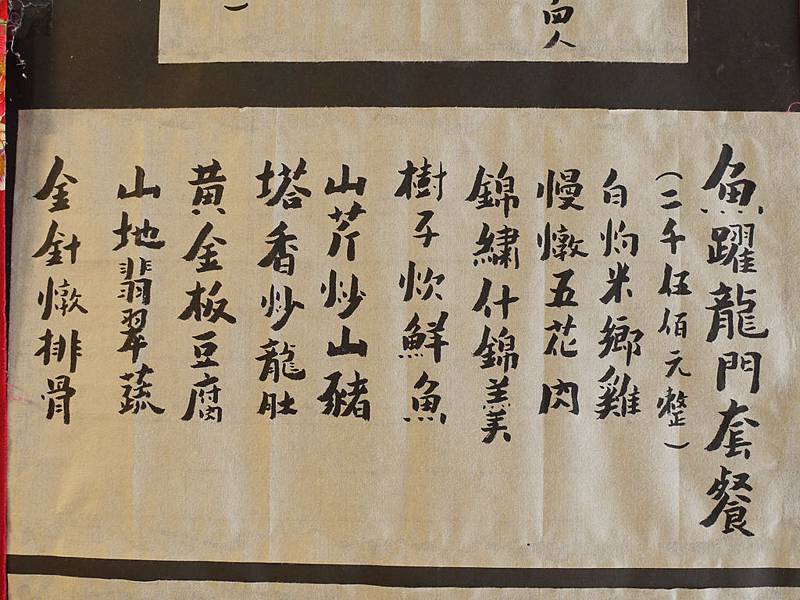 四人
）
魚躍龍門套餐
（二千伍佰元整）
白灼米鄉雞
慢燉五花肉
錦繡什錦羹
樹子炊鮮魚
山芹炒山豬
塔香炒龍肚
黃金板豆腐
山地翡翠蔬
金針燉排骨